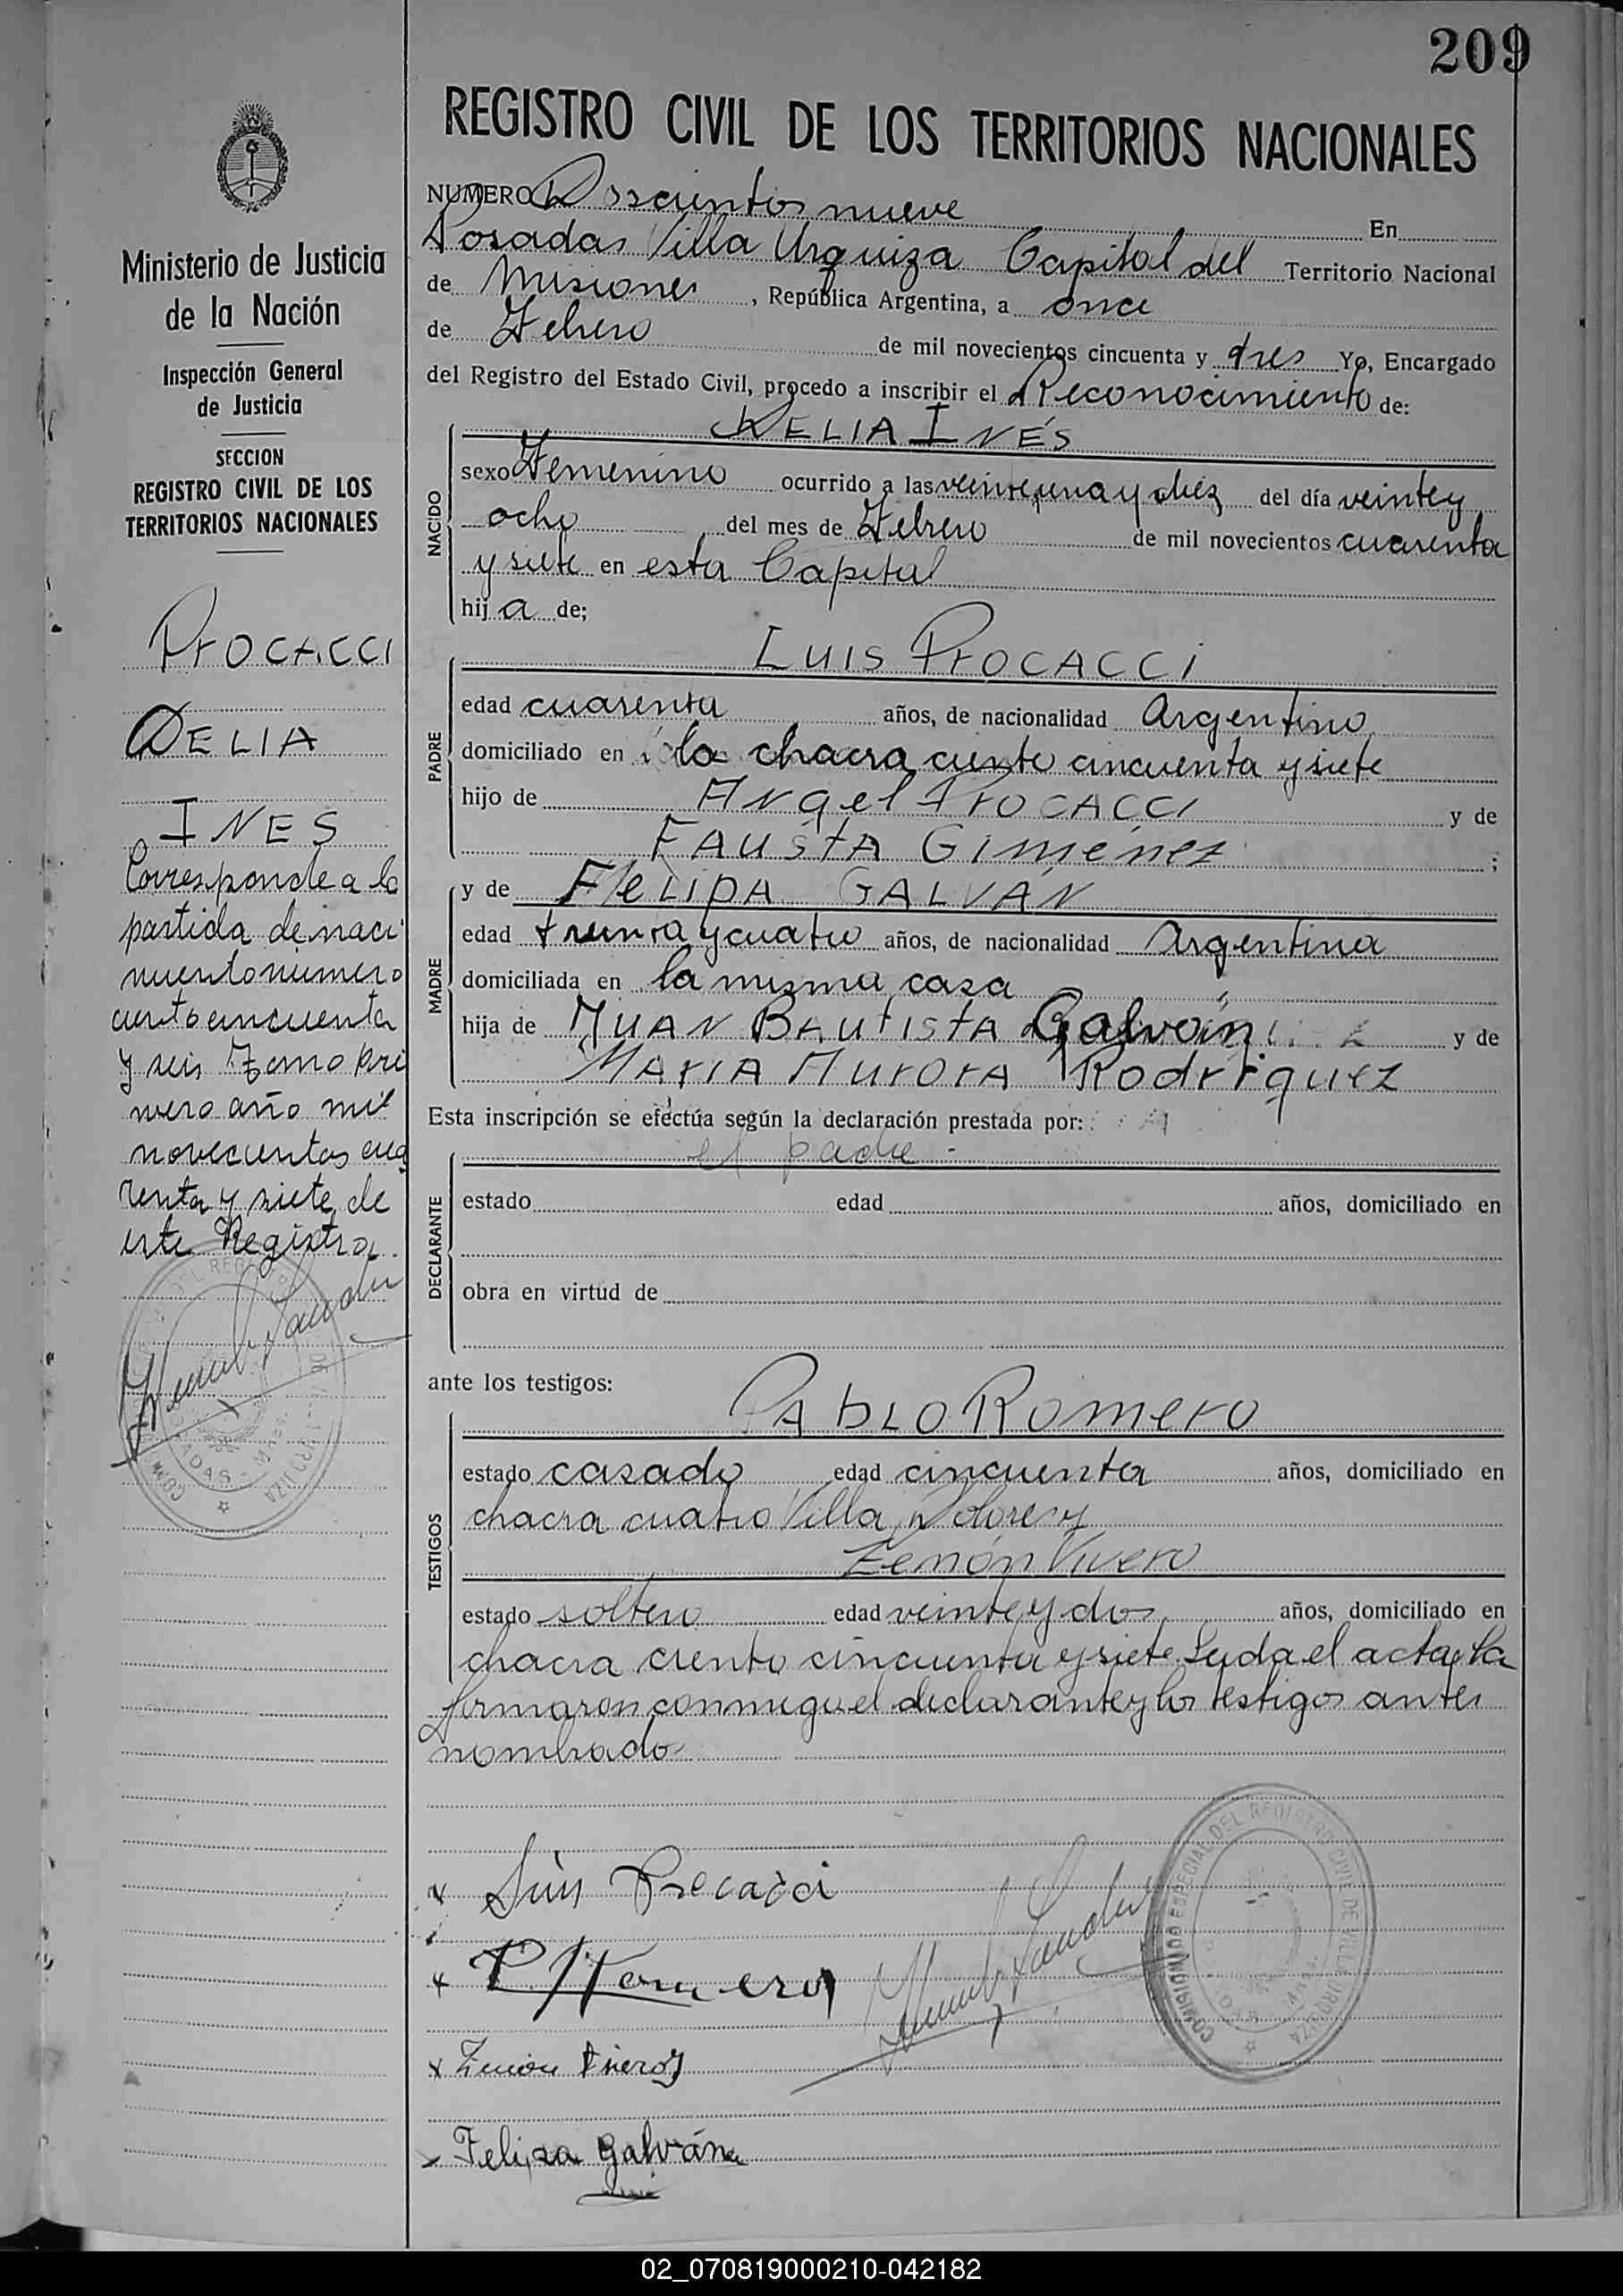 209
REGISTRO CIVIL DE LOS TERRITORIOS NACIONALES
NUMERO Doscientos nueve En
Posadas Villa Urquiza Capital del Territorio Nacional
de Misiones, República Argentina, a once
de Febrero de mil novecientos cincuenta y tres Yo, Encargado
del Registro del Estado Civil, procedo a inscribir el Reconocimiento de:
NACIDO
DELIA INÉS
sexo Femenino ocurrido a las veinte una y diez del día veinte y
ocho del mes de Febrero de mil novecientos cuarenta
y siete en esta Capital
hija de;
PADRE
LUIS PrOCACCI
edad cuarenta años, de nacionalidad Argentino
domiciliado en la chacra ciento cincuenta y siete
hijo de Angel PrOCACCI y de
FAUSTA Giménez ;
MADRE
y de FELIPA GALVÁN
edad treinta y cuatro años, de nacionalidad Argentina
domiciliada en la misma casa
hija de JUAN BAUTISTA Galván y de
MArIA AUrOrA Rodríguez
Esta inscripción se efectúa según la declaración prestada por:
DECLARANTE
el padre -
estado edad años, domiciliado en
obra en virtud de
ante los testigos:
TESTIGOS
PAbLO Romero
estado casado edad cincuenta años, domiciliado en
chacra cuatro Villa Dolores y
Zenón Vivero
estado soltero edad veinte y dos años, domiciliado en
chacra ciento cincuenta y siete. Leida el acta la
firmaron conmigo el declarante y los testigos antes
nombrado
x Luis Procacci
x P. Romero
x Zenón Vivero
x Felipa Galván
COMISIONADO ESPECIAL DEL REGISTRO CIVIL DE VILLA URQUIZA
Ministerio de Justicia
de la Nación
Inspección General
de Justicia
SECCION
REGISTRO CIVIL DE LOS
TERRITORIOS NACIONALES
PrOCACCI
DELIA
INES
Corresponde a la
partida de naci
miento número
ciento cincuenta
y seis Tomo pri
mero año mil
novecientos cua
renta y siete de
este Registro.
02_070819000210-042182